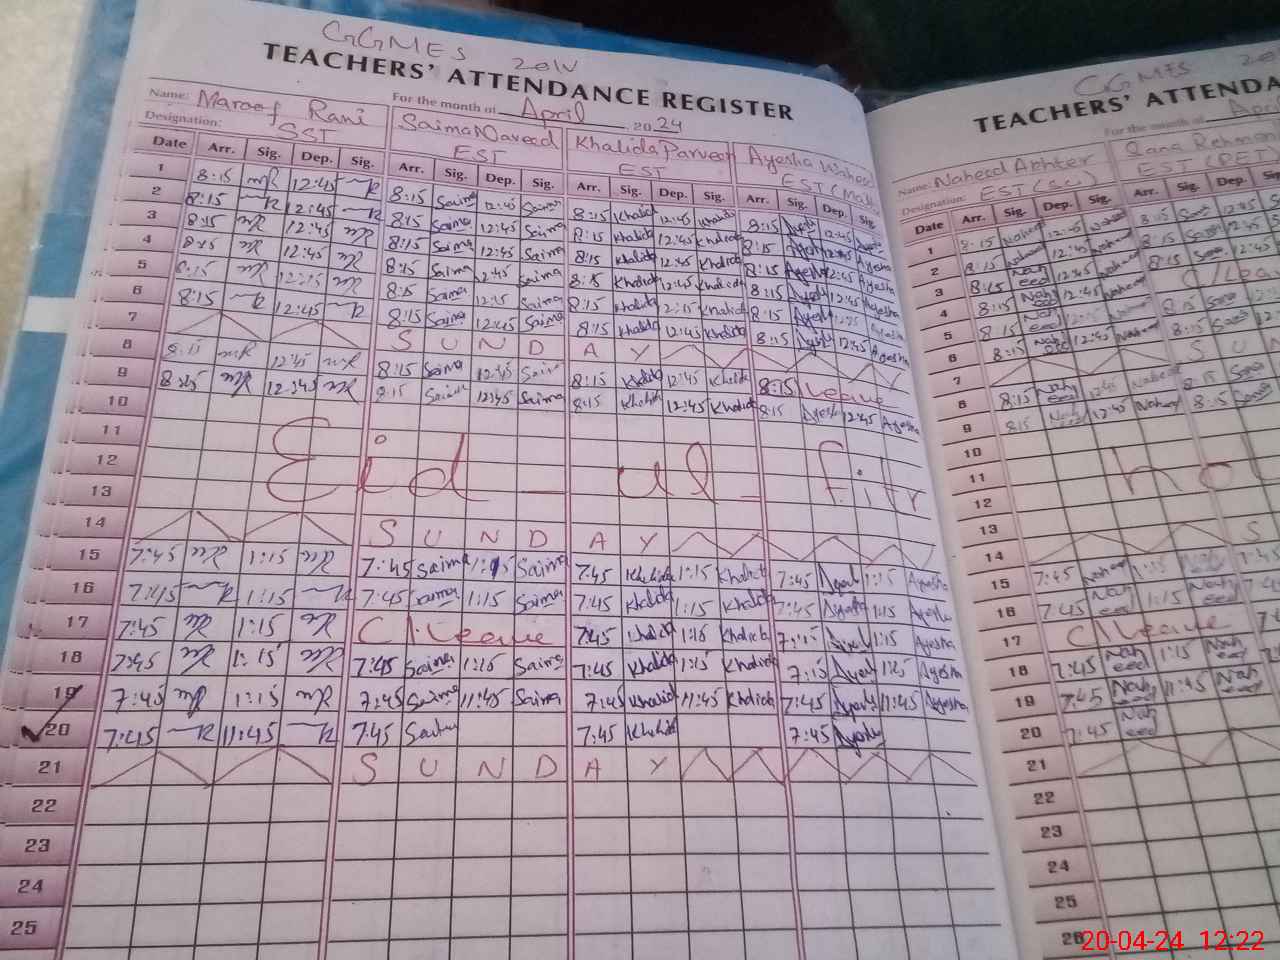 GGMES 2010
TEACHERS' ATTENDANCE REGISTER
For the month of April 2024
Name: Maroof Rani Saima Naveed Khalida Parveen Ayesha Waheed
Designation: SST EST EST EST
Date Arr. Sig. Dep. Sig. Arr. Sig. Dep. Sig. Arr. Sig. Dep. Sig. Arr. Sig. Dep. Sig.
1 8:15 mR 12:45 mR 8:15 Saima 12:45 Saima 8:15 Khalida 12:45 Khalida 8:15 Ayesha 12:45 Ayesha
2 8:15 mR 12:45 mR 8:15 Saima 12:45 Saima 8:15 Khalida 12:45 Khalida 8:15 Ayesha 12:45 Ayesha
3 8:15 mR 12:45 mR 8:15 Saima 12:45 Saima 8:15 Khalida 12:45 Khalida 8:15 Ayesha 12:45 Ayesha
4 8:15 mR 12:45 mR 8:15 Saima 12:45 Saima 8:15 Khalida 12:45 Khalida 8:15 Ayesha 12:45 Ayesha
5 8:15 mR 12:15 mR 8:15 Saima 12:15 Saima 8:15 Khalida 12:15 Khalida 8:15 Ayesha Ayesha
6 8:15 mR 12:45 mR 8:15 Saima 12:45 Saima 8:15 Khalida 12:45 Khalida 8:15 Ayesha 12:45 Ayesha
7 SUNDAY
8 8:15 mR 12:45 mR 8:15 Saima 12:45 Saima 8:15 Khalida 12:45 Khalida 8:15 Leave
9 8:15 mR 12:45 mR 8:15 Saima 12:45 Saima 8:15 Khalida 12:45 Khalida 8:15 Ayesha 12:45 Ayesha
10
11
12 Eid - ul - fitr
13
14 SUNDAY
15 7:45 mR 1:15 mR 7:45 Saima 1:15 Saima 7:45 Khalida 1:15 Khalida 7:45 Ayesha 1:15 Ayesha
16 7:45 mR 1:15 mR 7:45 Saima 1:15 Saima 7:45 Khalida 1:15 Khalida 7:45 Ayesha 1:15 Ayesha
17 7:45 mR 1:15 mR C/Leave 7:45 Khalida 1:15 Khalida Ayesha 1:15 Ayesha
18 7:45 mR 1:15 mR 7:45 Saima 1:15 Saima 7:45 Khalida 1:15 Khalida 7:15 Ayesha Ayesha
19 7:45 mR 1:15 mR 7:45 Saima 11:45 Saima 7:45 Khalida 11:45 Khalida 7:45 Ayesha 11:45 Ayesha
20 7:45 mR 11:45 mR 7:45 Saima 7:45 Khalida 7:45 Ayesha
21 SUNDAY
22
23
24
25
GGMES 20
TEACHERS' ATTENDA
For the month of Apri
Name: Naheed Akhter Qana Rehman
Designation: EST EST (PET)
Date Arr. Sig. Dep. Sig. Arr. Sig. Dep.
1 8:15 Naheed 12:45 Naheed 8:15 12:45
2 8:15 Naheed 12:45 Naheed 8:15 12:45
3 8:15 Naheed 12:45 Naheed 8:15 12:45
4 8:15 Naheed 12:45 Naheed C/Leav
5 8:15 Naheed Naheed 8:15
6 8:15 Naheed 12:45 Naheed 8:15
7 SUN
8 8:15 Naheed 12:45 Naheed 8:15
9 8:15 Naheed 12:45 Naheed 8:15
10
11 hol
12
13
14 S
15 7:45 Naheed 1:15
16 7:45 Naheed 1:15 Naheed
17 C/Leave
18 7:45 Naheed 1:15 Naheed
19 7:45 Naheed 11:45 Naheed
20 7:45 Naheed
21
22
23
24
25
26
20-04-24 12:22